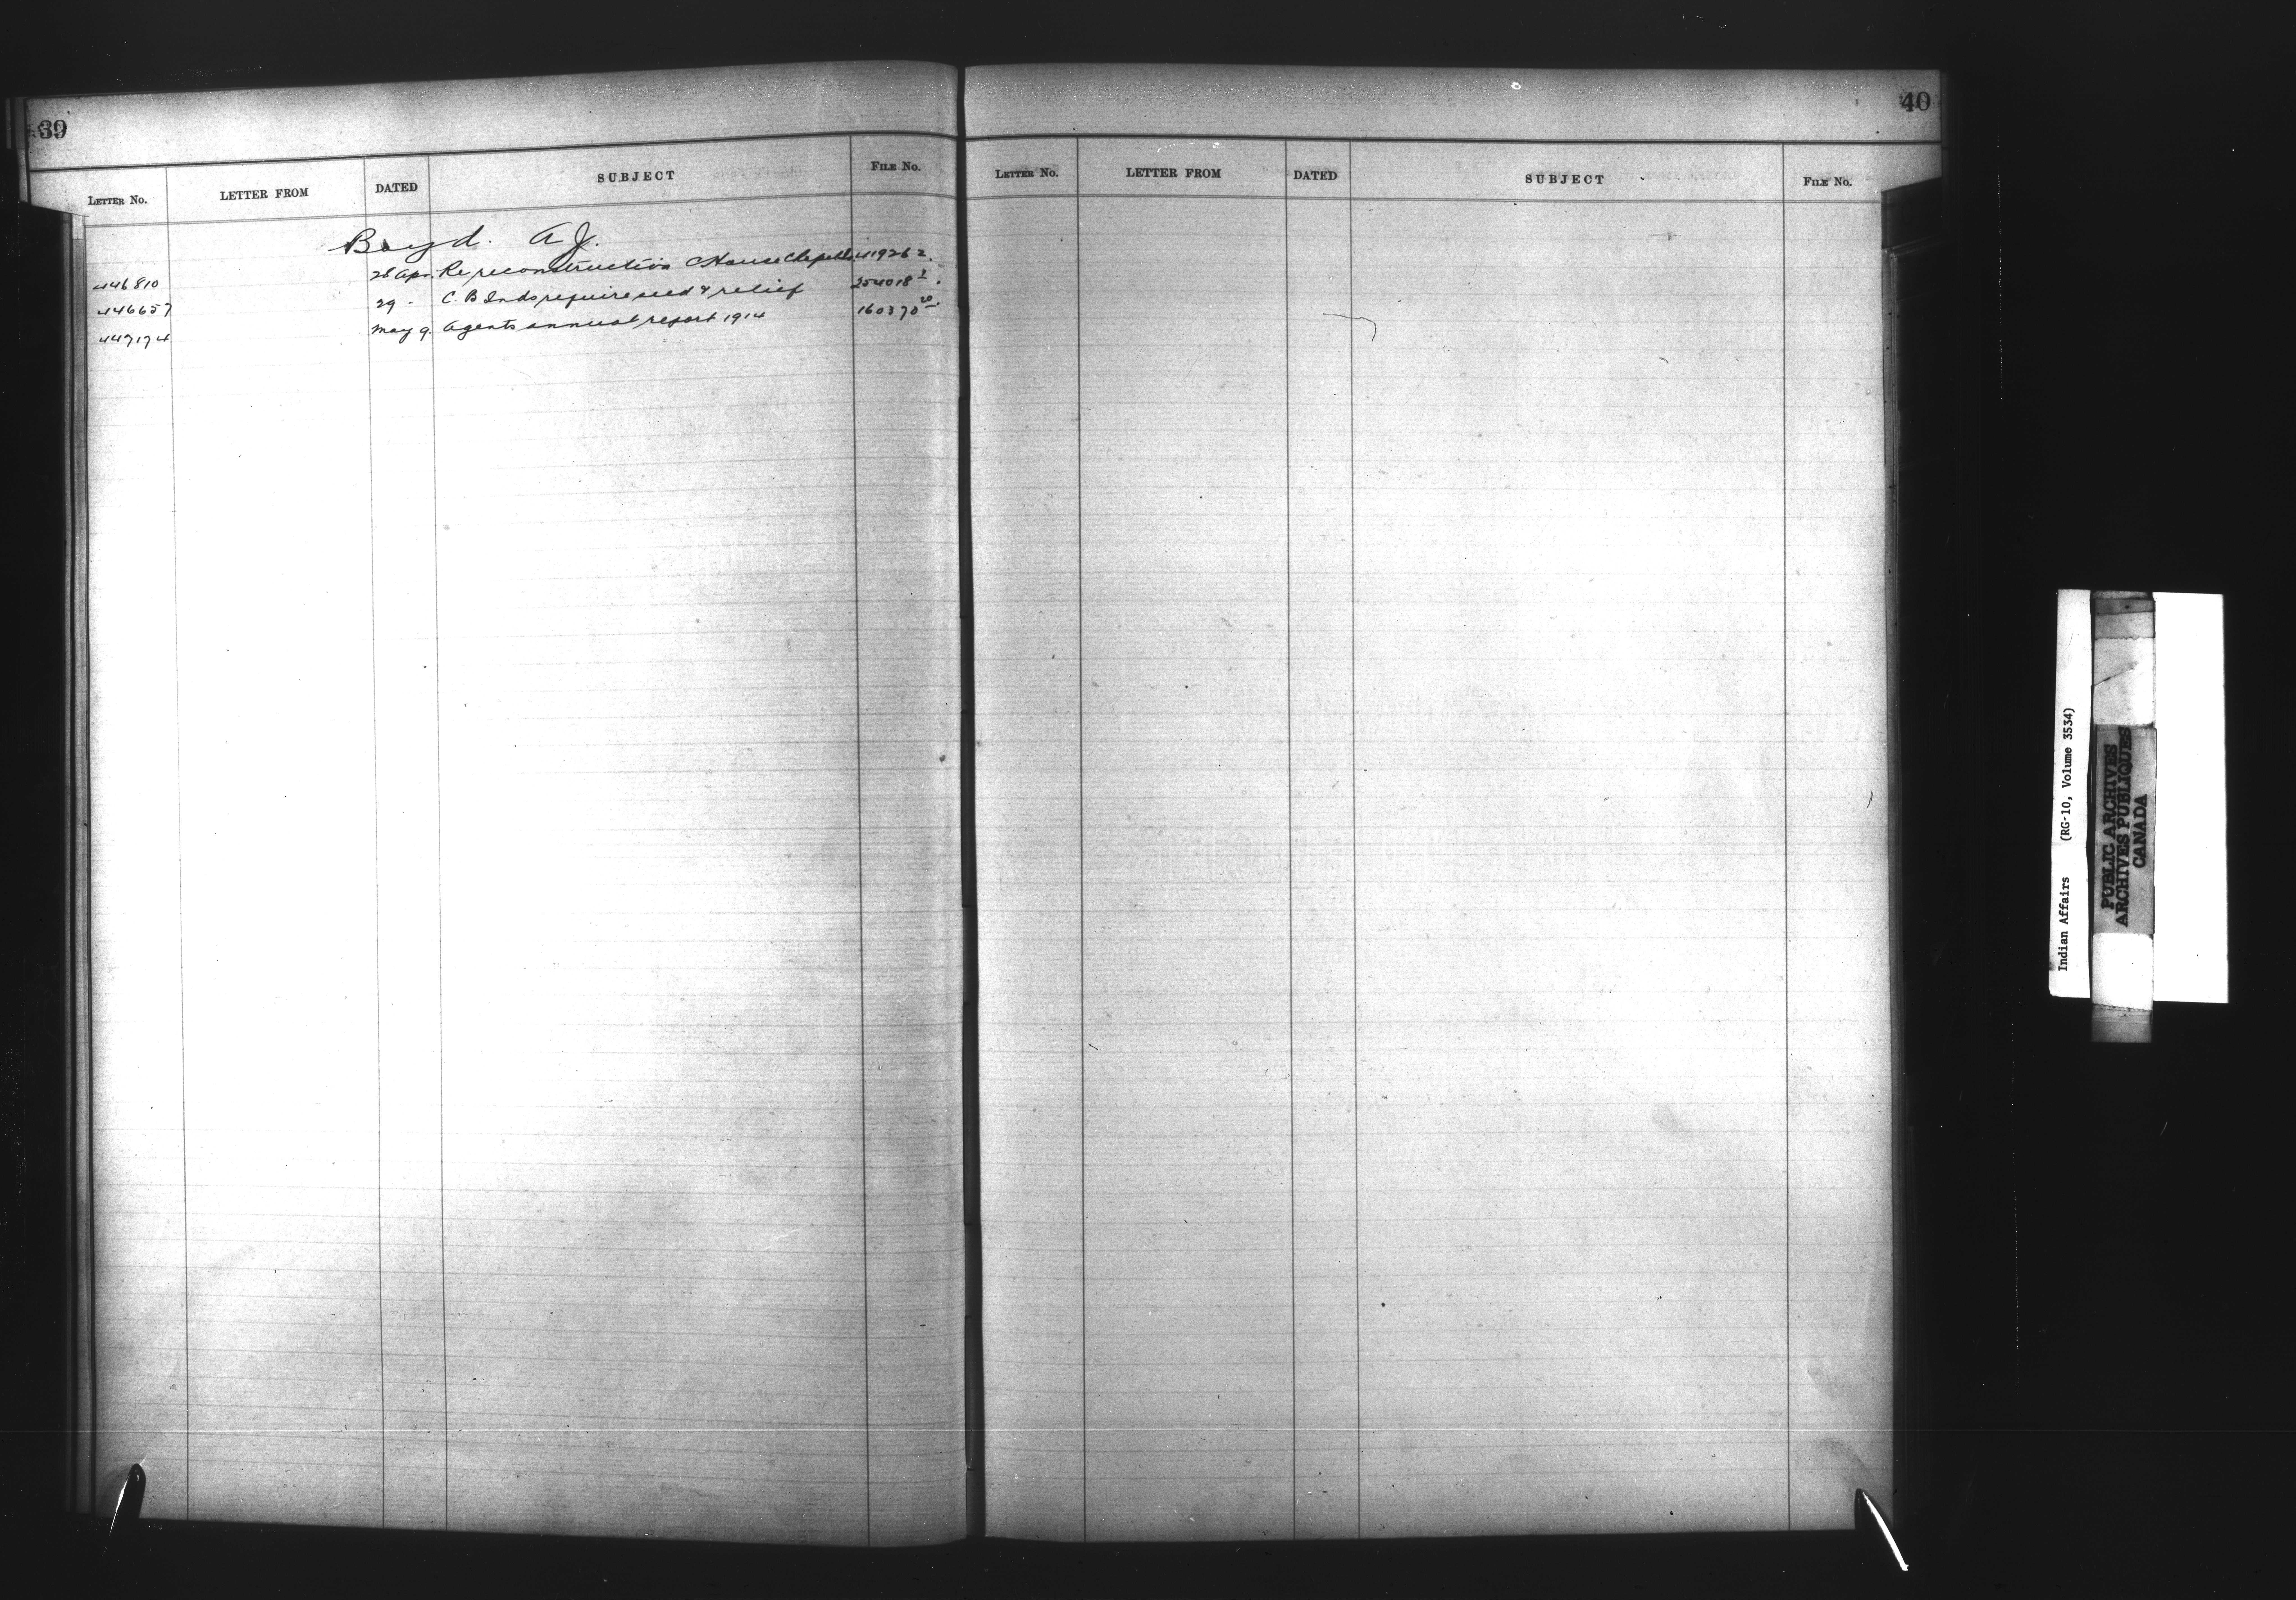 39
LETTER NO. LETTER FROM DATED SUBJECT FILE No.
Boyd. A J.
446810 28 Apr. Re reconstruction House 41926 2.
446657 29 - C. B Inds require seed & relief 254018 2.
447174 May 9. Agents annual report 1914 160370 20.
40
LETTER No. LETTER FROM DATED SUBJECT FILE No.
Indian Affairs (RG-10, Volume 3534)
PUBLIC ARCHIVES
ARCHIVES PUBLIQUES
CANADA